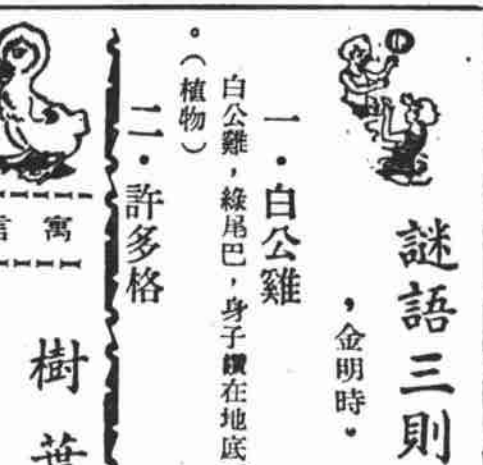 謎語三則
，金明時。
一・白公雞
白公雞，綠尾巴，身子鑽在地底
。（植物）
二・許多格
寓言
樹葉